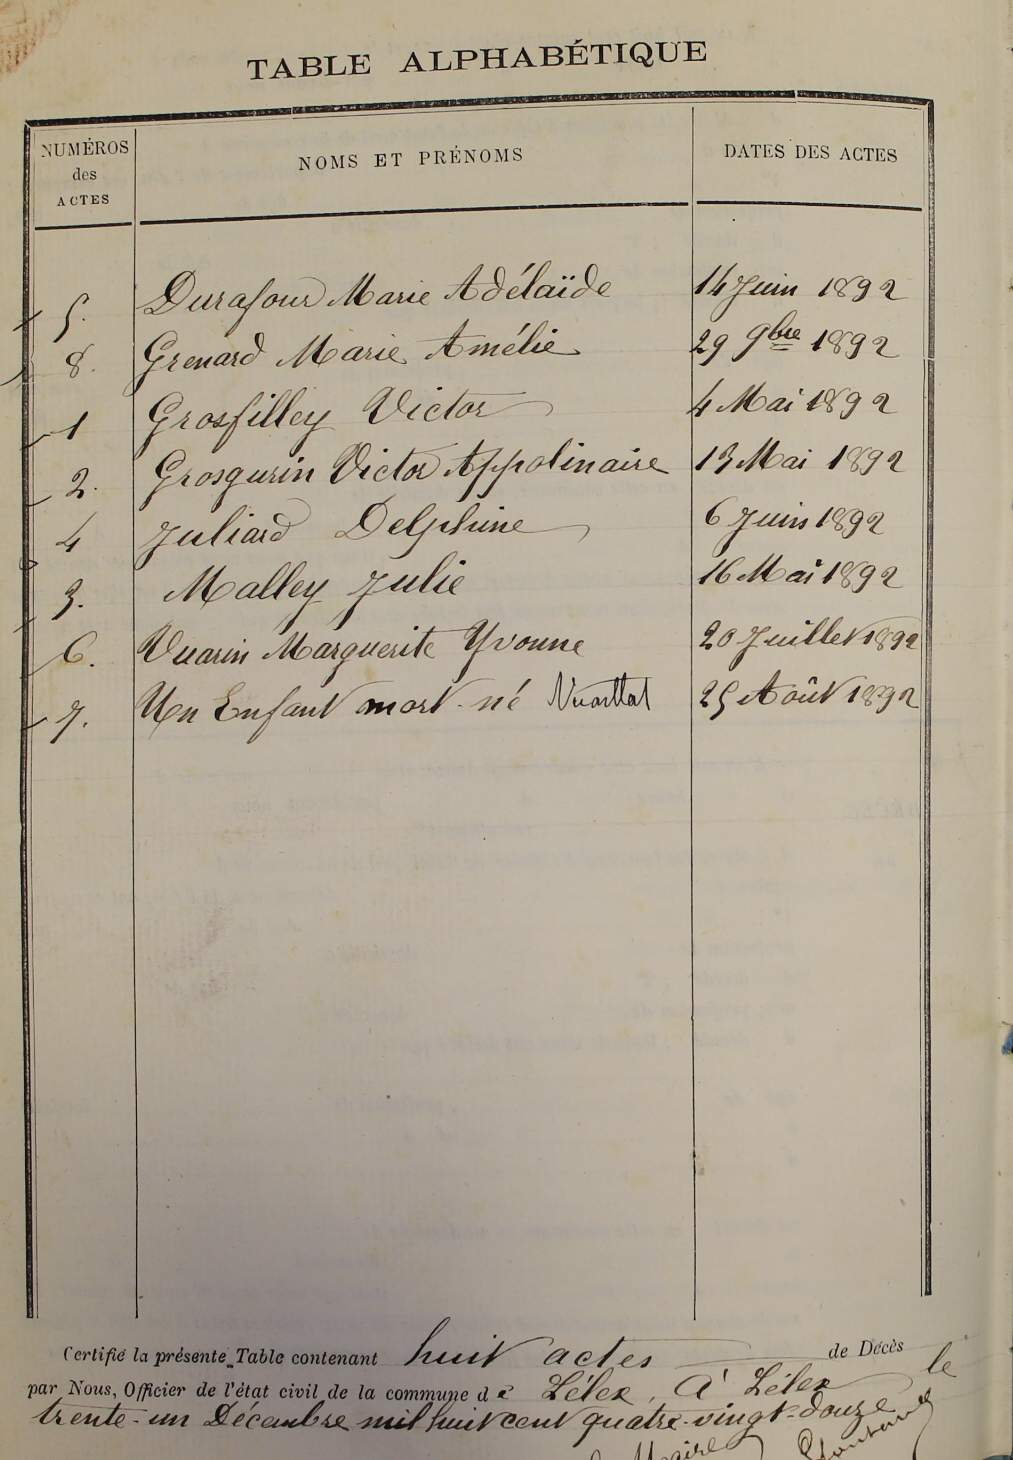 TABLE ALPHABÉTIQUE
NUMÉROS des ACTES NOMS ET PRÉNOMS DATES DES ACTES
5. Durafour Marie Adélaïde 14 Juin 1892
8. Grenard Marie Amélie 29 9bre 1892
1 Grosfilley Victor 4 Mai 1892
2. Grosgurin Victor Appolinaire 13 Mai 1892
4 Juliard Delphine 6 Juin 1892
3. Malley Julie 16 Mai 1892
6. Vuarin Marguerite Yvonne 20 Juillet 1892
7. Un Enfant mort-né 25 Août 1892
Certifié la présente Table contenant huit actes de Décès
par Nous, Officier de l'état civil de la commune de Lélex, à Lélex le
trente-un Décembre mil huit cent quatre-vingt-douze
Maire